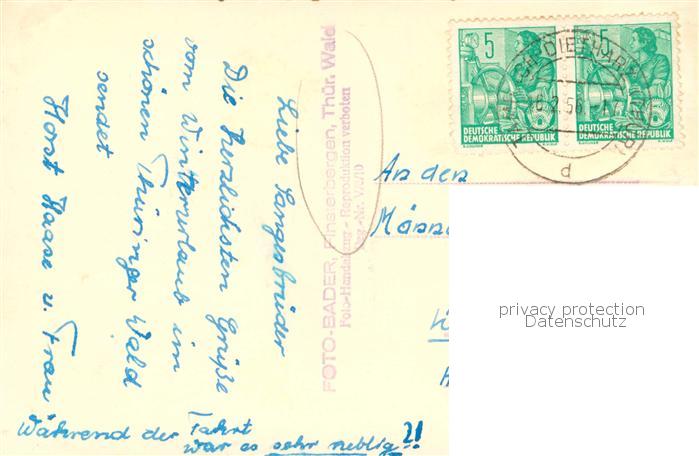 Liebe Sangesbrüder
Die herzlichsten Grüße
vom Winterurlaub im
schönen Thüringer Wald
sendet
Horst Haase u. Frau
Während der Fahrt
war es sehr neblig?!
FOTO-BADER, Finsterbergen, Thür. Wald
Foto-Handabzug - Reproduktion verboten
An den
Männ
5
DEUTSCHE
DEMOKRATISCHE REPUBLIK
5
DEUTSCHE
DEMOKRATISCHE REPUBLIK
DIETHARZ
d
privacy protection
Datenschutz